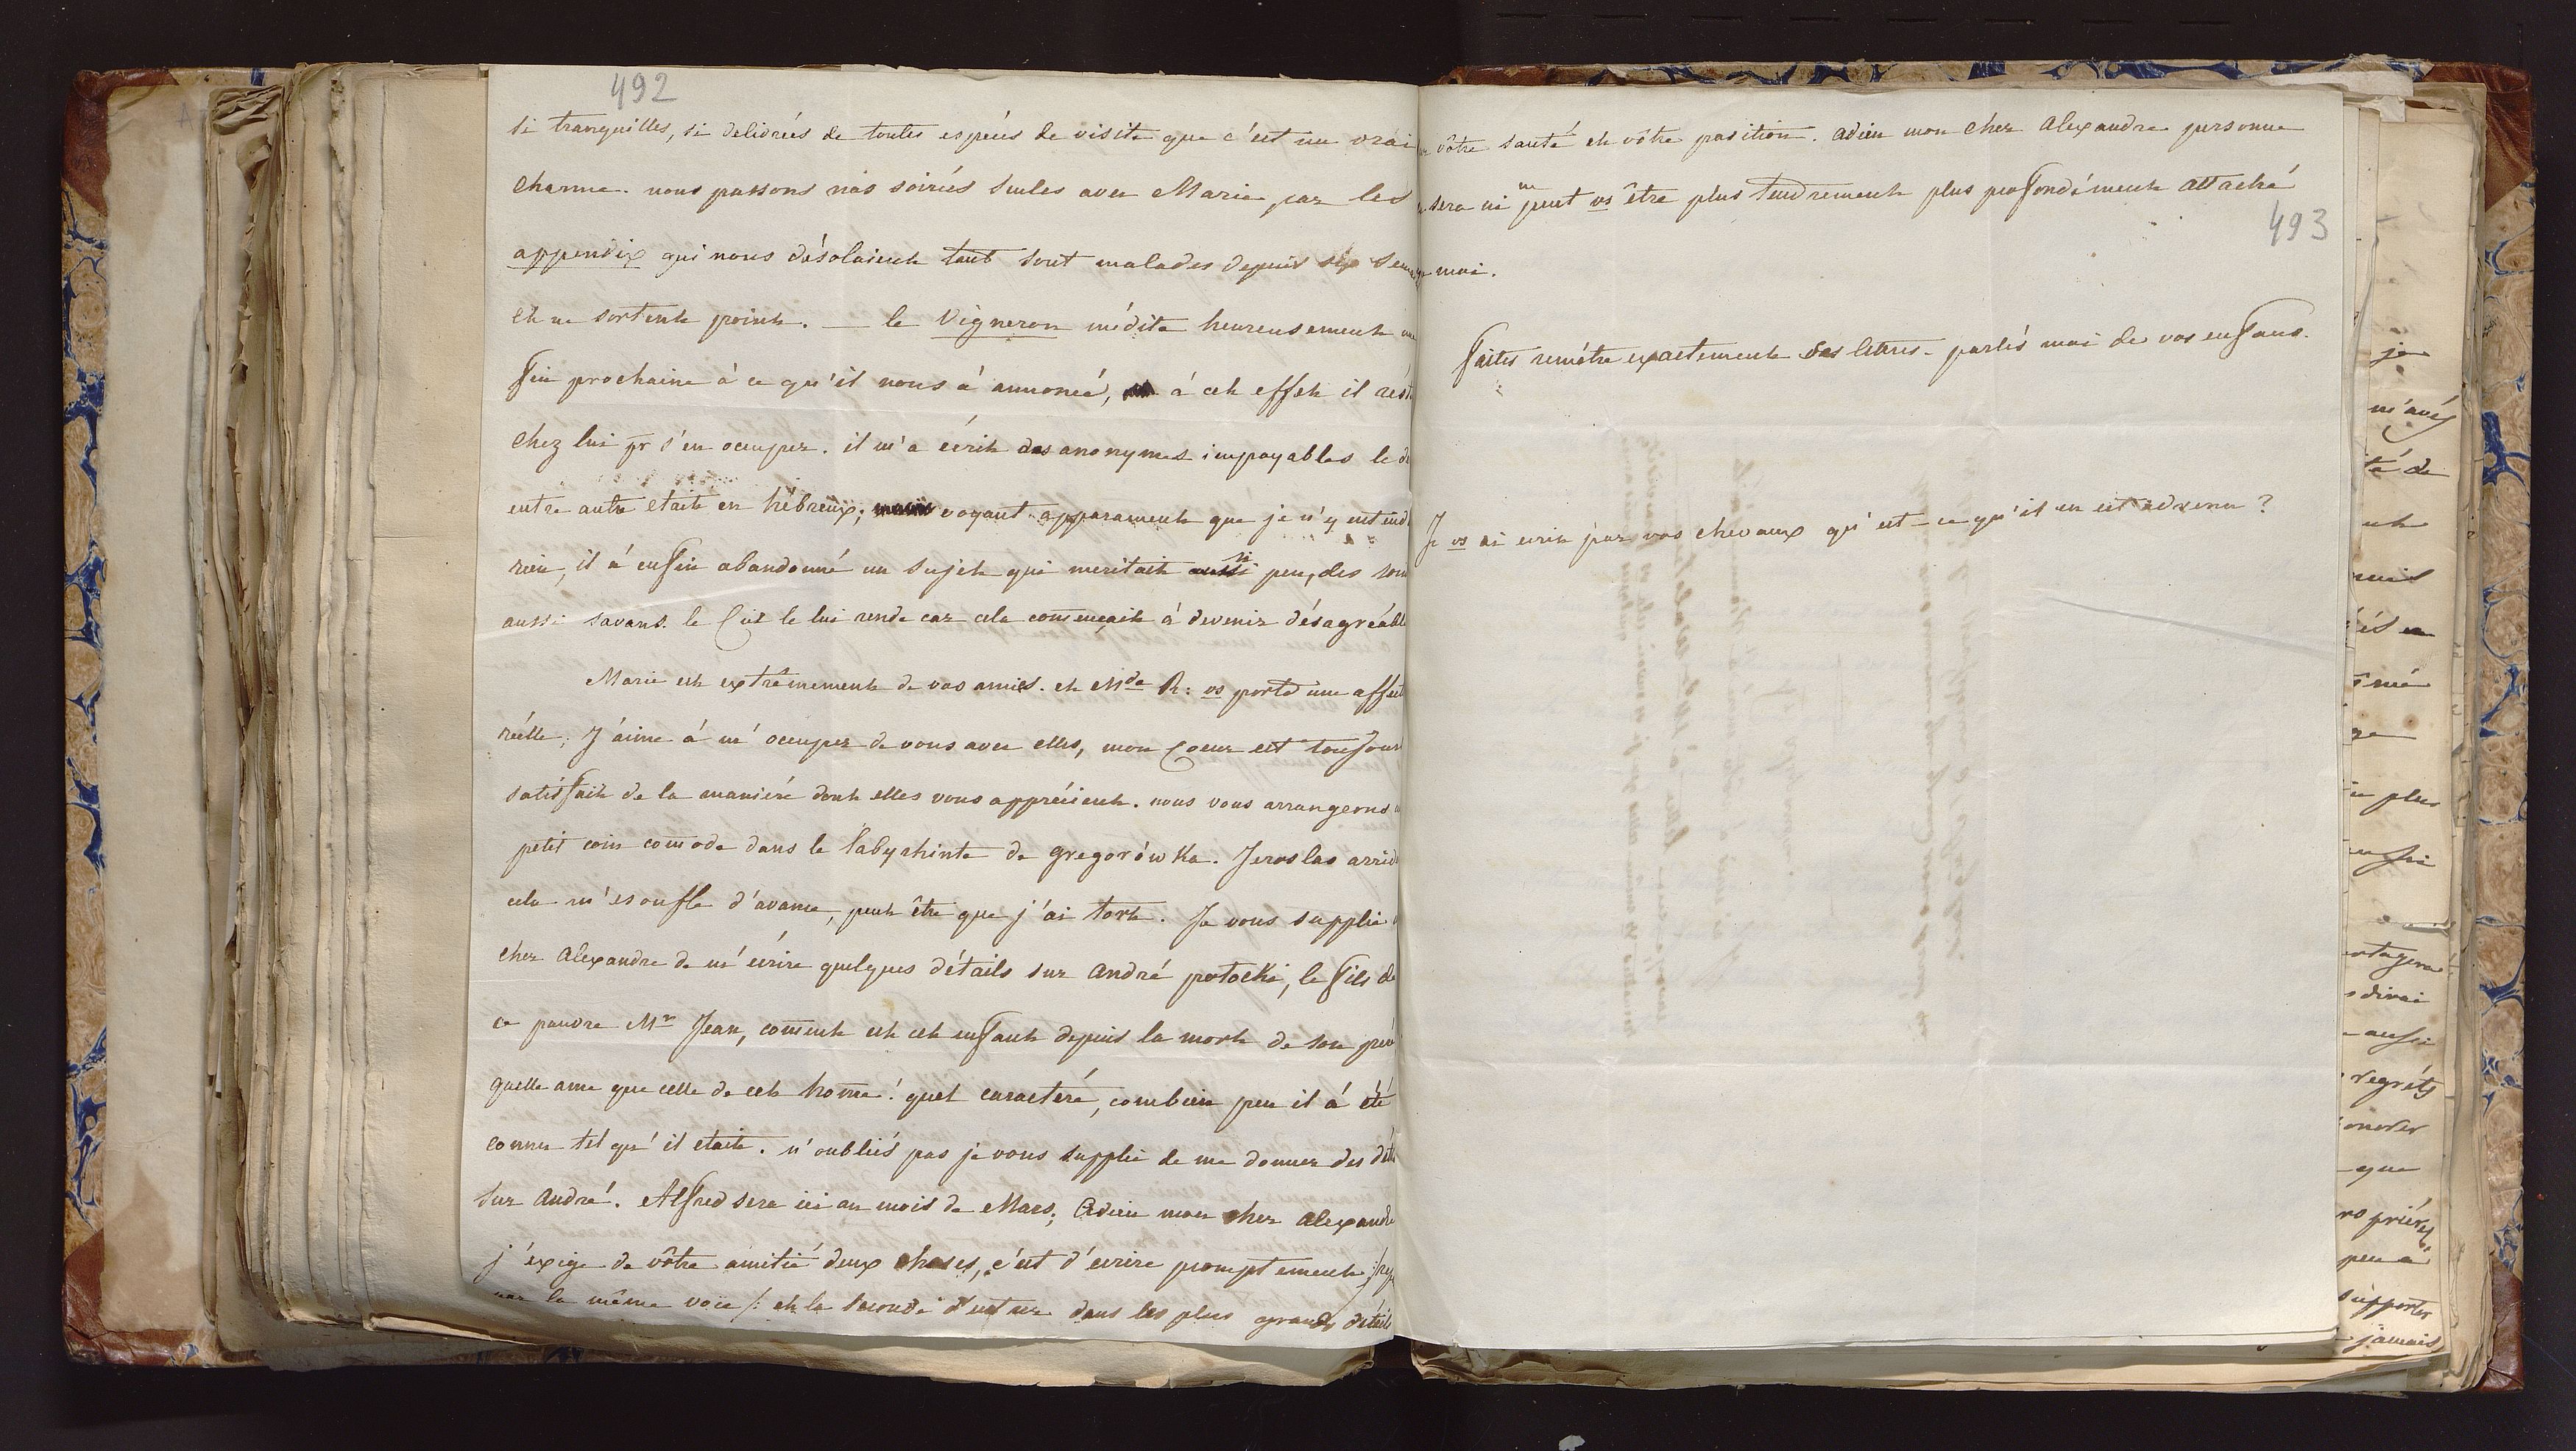 492
si tranquilles, si delivrées de toutes espéces de visite que c'est un vrai
charme. nous passons nos soirées seules avec Marie, car les
appendix qui nous désolaient tant sont malades depuis six
et ne sortent point. — le Vigneron médite heureusement
fin prochaine à ce qu'il nous á annoncé, à cet effet il
chez lui pr s'en occuper. il m'a écrit des anonymes impayables le
entre autre etait en hébreux; voyant apparament que je n'y
rien, il á enfin abandonné un sujet qui meritait si peu, des
aussi savans. le Ciel le lui rende car cela comencait à devenir désagréable
Marie est extrêmement de vos amies. et Mde R: vs porte une
réelle; J'aime á m'occuper de vous avec elles, mon Coeur est toujours
satisfait de la maniére dont elles vous apprécient. nous vous arrangerons
petit coin comode dans le labyrhinte de gregorówka. Jeroslas
cela m'esoufle d'avance, peut être que j'ai tort. Je vous supplie
cher Alexandre de m'écrire quelques détails sur André potocki, le fils de
ce pauvre Mr Jean, coment est cet enfant depuis la mort de son pére
quelle ame que celle de cet home! quel caractére, combien peu il á été
connu tel qu'il etait. n'oubliés pas je vous supplie de me donner des
sur André. Alfred sera ici au mois de Mars; Adieu mon cher Alexandre
j'exige de vôtre amitié deux choses, c'est d'ecrire promptement
par la même voie /: et la seconde d'entrer dans les plus grands détails
vôtre santé et vôtre position. Adieu mon cher Alexandre personne
sera ni ne peut vs être plus tendrement plus profondément attaché
493
moi.
faites remétre exactement ses lettres - parlés moi de vos enfans.
Je vs ai ecrit par vos chevaux qu'est-ce qu'il en est advenu?
je
m'avés
té de
plus
regréts
que
peu á
supporter
jamais